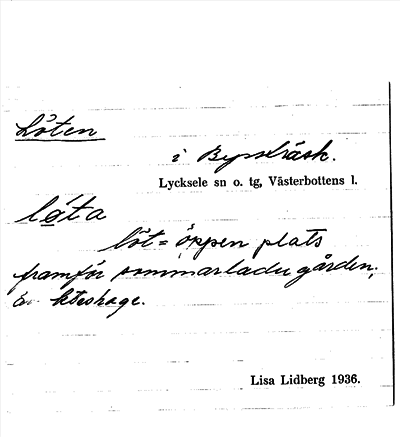 Löten
i Byssträsk.
Lycksele sn o. tg, Västerbottens l.
löta
löt = öppen plats
framför sommarladugården;
Lisa Lidberg 1936.